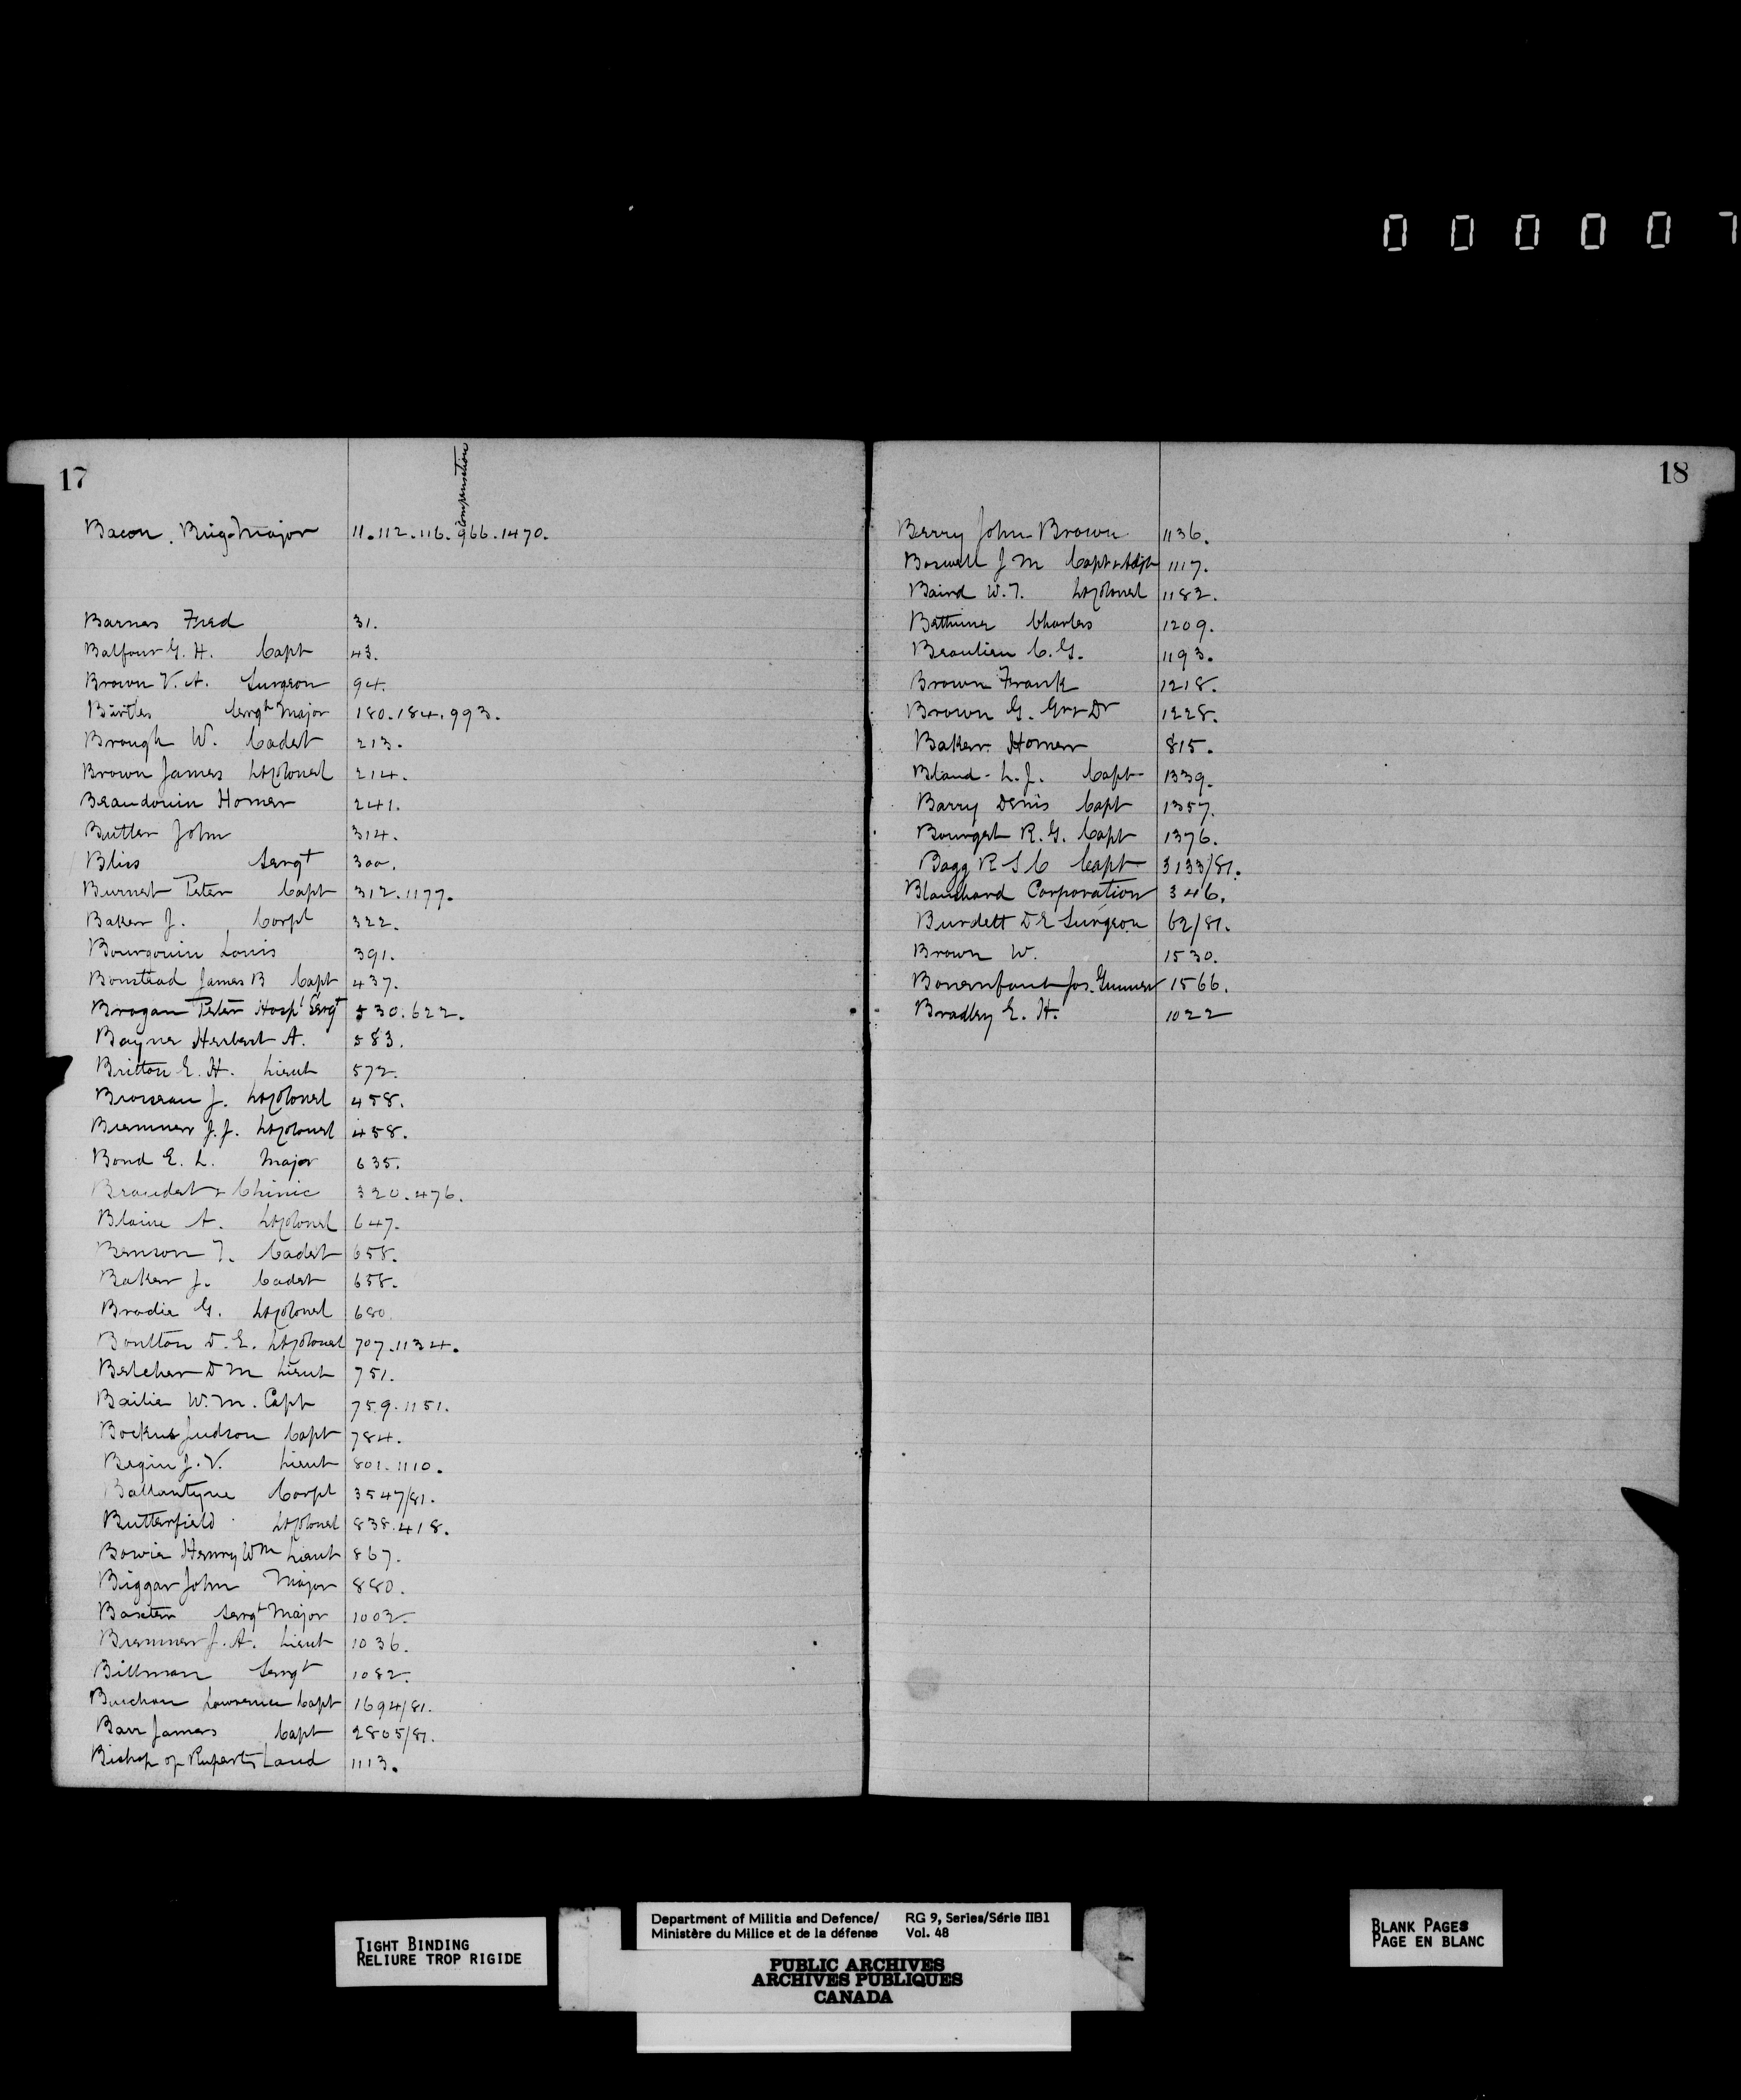 0 0 0 0 0 7
17
compensation
Bacon. Brig-Major 11.112.116.966.1470.
Barnes Fred 31.
Balfour G. H. Capt 43.
Brown V. A. Surgeon 94.
Birtles Sergt Major 180.184.993.
Brough W. Cadet 213.
Brown James Lt Colonel 214.
Beaudouin Homer 241.
Butler John 314.
Bliss Sergt 300.
Burnet Peter Capt 312.1177.
Baker J. Corpl 322.
Bourgouin Louis 391.
Boustead James B Capt 437.
Brogan Peter Hospl Sergt 530.622.
Bayne Herbert A. 583.
Britton E. H. Lieut 572.
Brosseau J. Lt Colonel 458.
Bremner J. J. Lt Colonel 458.
Bond E. L. Major 635.
Beaudet & Chinic 320.476.
Blaine A. Lt Colonel 647.
Benson T. Cadet 658.
Baker J. Cadet 658.
Brodie G. Lt Colonel 680.
Boulton D. E. Lt Colonel 707.1134.
Belcher D M Lieut 751.
Bailie W. M. Capt 759.1151.
Bockus Judson Capt 784.
Begin J. V. Lieut 801.1110.
Ballantyne Corpl 3547/81.
Butterfield Lt Colonel 838.418.
Bowie Henry Wm Lieut 867.
Biggar John Major 880.
Baxter Sergt Major 1002.
Bremner J. A. Lieut 1036.
Billman Sergt 1082.
Buchan Lawrence Capt 1694/81.
Barr James Capt 2805/81.
Bishop of Ruperts Land 1113.
18
Berry John Brown 1136.
Boswell J M Capt & Adjt 1117.
Baird W. T. Lt Colonel 1182.
Bethune Charles 1209.
Beaulieu C. G. 1193.
Brown Frank 1218.
Brown G. Gnr Dr 1228.
Baker Homer 815.
Bland L. J. Capt 1339.
Barry Denis Capt 1357.
Bourget R. G. Capt 1376.
Bagg R S C Capt 3133/81.
Blanchard Corporation 346.
Burdett D E Surgeon 62/81.
Brown W. 1530.
Bonenfant Jos. Gunner 1566.
Bradley E. H. 1022
TIGHT BINDING
RELIURE TROP RIGIDE
Department of Militia and Defence/ RG 9, Series/Série IIB1
Ministère du Milice et de la défense Vol. 48
PUBLIC ARCHIVES
ARCHIVES PUBLIQUES
CANADA
BLANK PAGES
PAGE EN BLANC